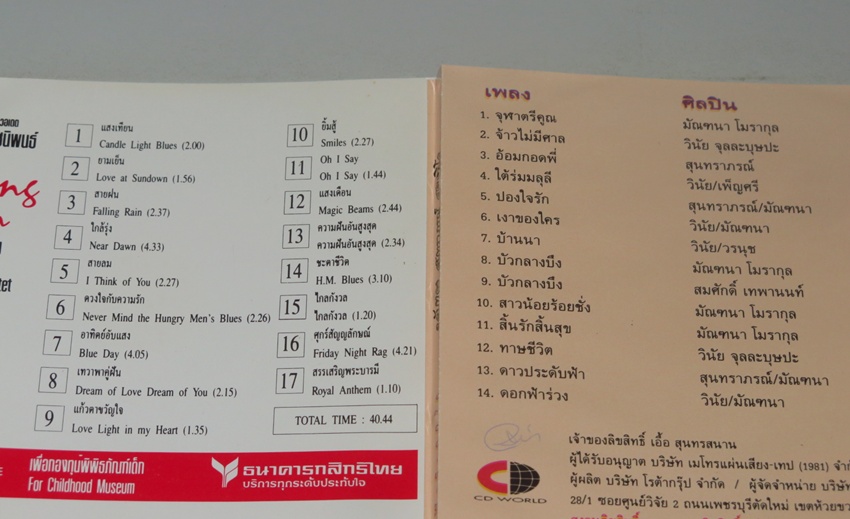 นิพนธ์
1 แสงเทียน
Candle Light Blues (2.00)
2 ยามเย็น
Love at Sundown (1.56)
3 สายฝน
Falling Rain (2.37)
4 ใกล้รุ่ง
Near Dawn (4.33)
5 สายลม
I Think of You (2.27)
6 ดวงใจกับความรัก
Never Mind the Hungry Men's Blues (2.26)
7 อาทิตย์อับแสง
Blue Day (4.05)
8 เทวาพาคู่ฝัน
Dream of Love Dream of You (2.15)
9 แก้วตาขวัญใจ
Love Light in my Heart (1.35)
10 ยิ้มสู้
Smiles (2.27)
11 Oh I Say
Oh I Say (1.44)
12 แสงเดือน
Magic Beams (2.44)
13 ความฝันอันสูงสุด
ความฝันอันสูงสุด (2.34)
14 ชะตาชีวิต
H.M. Blues (3.10)
15 ไกลกังวล
ไกลกังวล (1.20)
16 ศุกร์สัญลักษณ์
Friday Night Rag (4.21)
17 สรรเสริญพระบารมี
Royal Anthem (1.10)
TOTAL TIME : 40.44
เพื่อกองทุนพิพิธภัณฑ์เด็ก
For Childhood Museum
ธนาคารกสิกรไทย
บริการทุกระดับประทับใจ
เพลง ศิลปิน
1. จุฬาตรีคูณ มัณฑนา โมรากุล
2. จ้าวไม่มีศาล วินัย จุลละบุษปะ
3. อ้อมกอดพี่ สุนทราภรณ์
4. ใต้ร่มมลุลี วินัย/เพ็ญศรี
5. ปองใจรัก สุนทราภรณ์/มัณฑนา
6. เงาของใคร วินัย/มัณฑนา
7. บ้านนา วินัย/วรนุช
8. บัวกลางบึง มัณฑนา โมรากุล
9. บัวกลางบึง สมศักดิ์ เทพานนท์
10. สาวน้อยร้อยชั่ง มัณฑนา โมรากุล
11. สิ้นรักสิ้นสุข มัณฑนา โมรากุล
12. ทาษชีวิต วินัย จุลละบุษปะ
13. ดาวประดับฟ้า สุนทราภรณ์/มัณฑนา
14. ดอกฟ้าร่วง วินัย/มัณฑนา
CD WORLD
เจ้าของลิขสิทธิ์ เอื้อ สุนทรสนาน
ผู้ได้รับอนุญาต บริษัท เมโทรแผ่นเสียง-เทป (1981)
ผู้ผลิต บริษัท โรต้ากรุ๊ป จำกัด / ผู้จัดจำหน่าย
28/1 ซอยศูนย์วิจัย 2 ถนนเพชรบุรีตัดใหม่